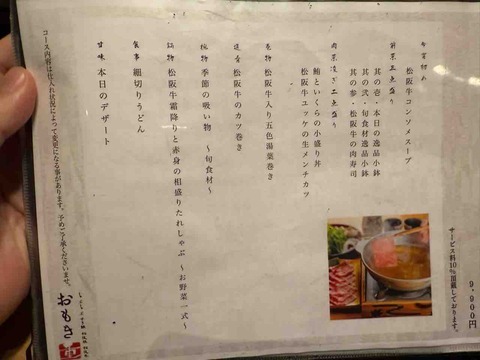 9,900円
サービス料10%頂戴しております。
松阪牛コンソメスープ
前菜三点盛り
其の壱・本日の逸品小鉢
其の弐・旬食材逸品小鉢
其の参・松阪牛の肉寿司
肉茶漬ぎ二点盛り
鮪といくらの小盛り丼
松阪牛ユッケの生メンチカツ
巻物 松阪牛入り五色湯葉巻き
進肴 松阪牛のカツ巻き
椀物 季節の吸い物 ～旬食材～
鍋物 松阪牛霜降りと赤身の相盛りたれしゃぶ ～お野菜一式～
食事 細切りうどん
甘味 本日のデザート
コース内容は仕入れ状況によって変更になる事があります。予めご了承くださいませ。
おもき